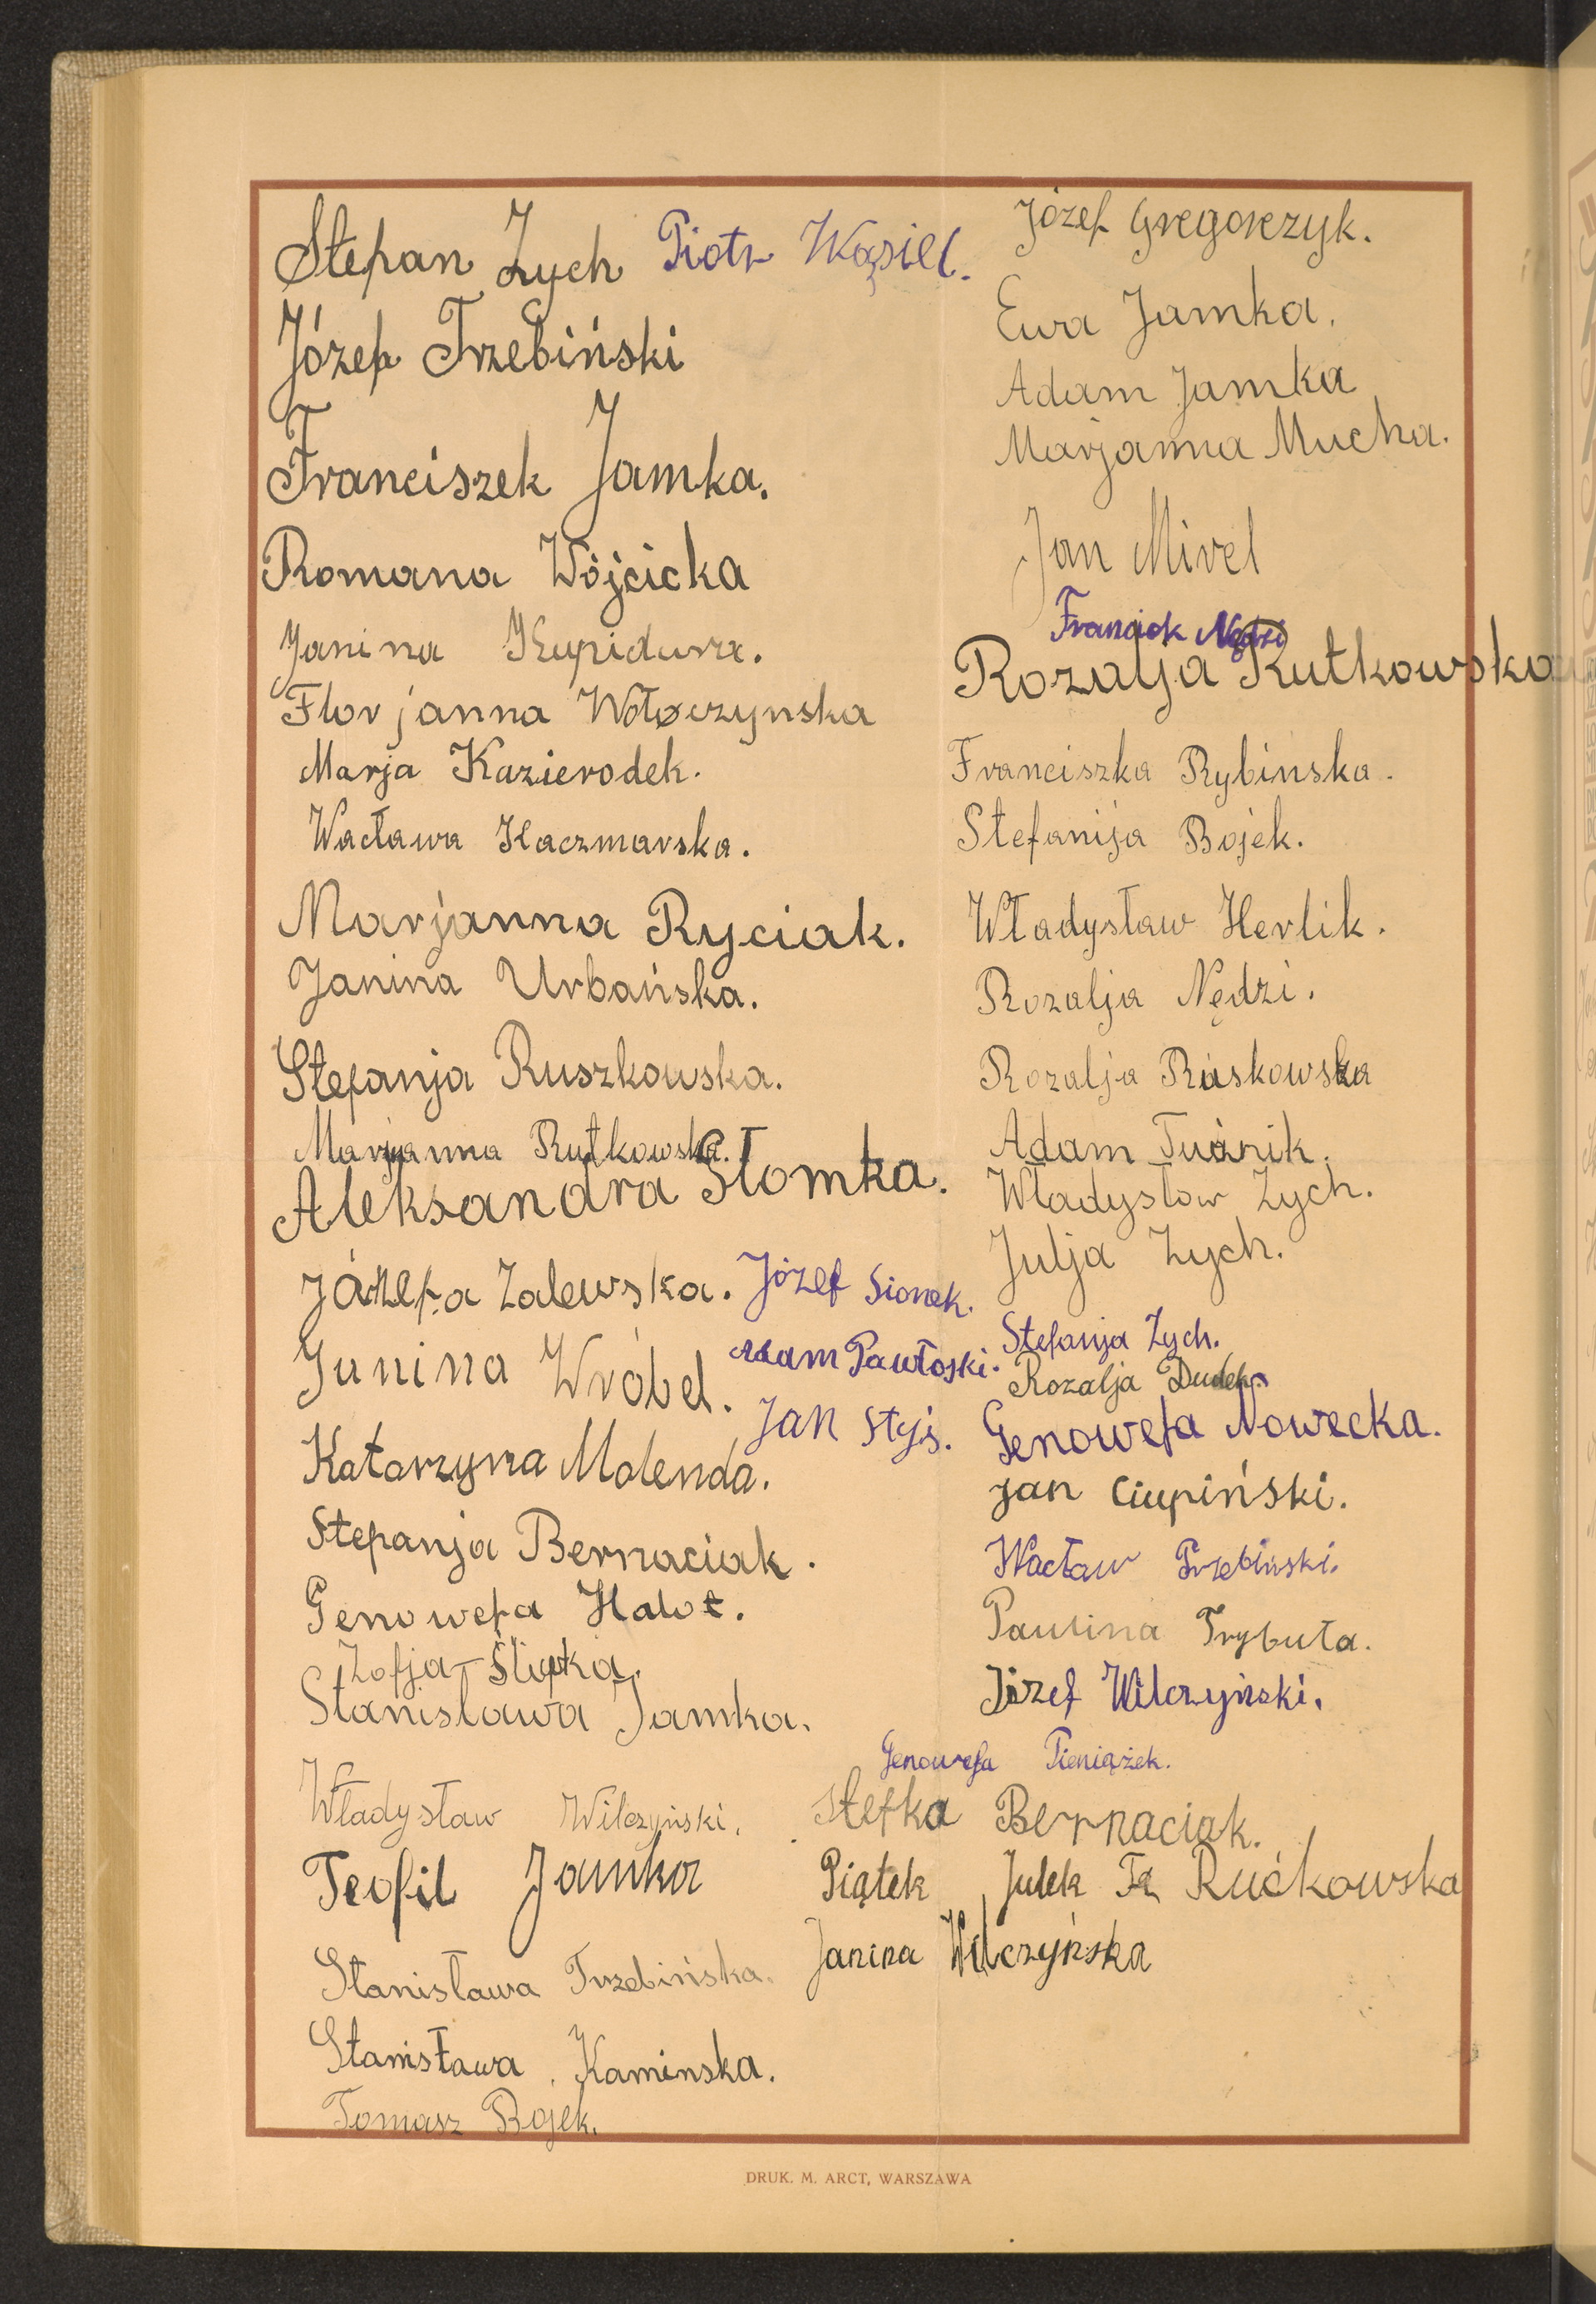 Stefan Zych Piotr Wąsiel.
Józef Trzebiński
Franciszek Jamka.
Romana Wójcicka
Janina Kupidura.
Florjanna Wołoczynska
Marja Kazierodek.
Wacława Kaczmarska.
Marjanna Ryciak.
Janina Urbańska.
Stefanja Ruszkowska.
Marjanna Rutkowska.
Aleksandra Słomka.
Józefa Zalewska. Józef Sionek.
Janina Wróbel. Adam Pawłoski.
Jan Styś.
Katarzyna Molenda.
Stefanja Bernaciak.
Genowefa
Zofja Śliwka.
Stanisława Jamka.
Władysław Wilczyński.
Teofil Jamka
Stanisława Trzebińska.
Stanisława Kaminska.
Tomasz Bojek.
Józef Gregorczyk.
Ewa Jamka.
Adam Jamka
Marjanna Mucha.
Jan Mirel
Francick Nędzi
Rozalja Rutkowska
Franciszka Rybinska.
Stefanija Bojek.
Władysław Herlik.
Rozalja Nędzi.
Rozalja Ruskowska
Adam
Władysłow Zych.
Julja Zych.
Stefanja Zych.
Rozalja Dudek.
Genowefa Nowecka.
Jan Ciupiński.
Wacław Trzebiński.
Paulina Trybuła.
Józef Wilczyński.
Genowefa Pieniążek.
Stefka Bernaciak.
Piątek Julek Fr Rućkowska
Janina Wilczyńska
DRUK. M. ARCT, WARSZAWA